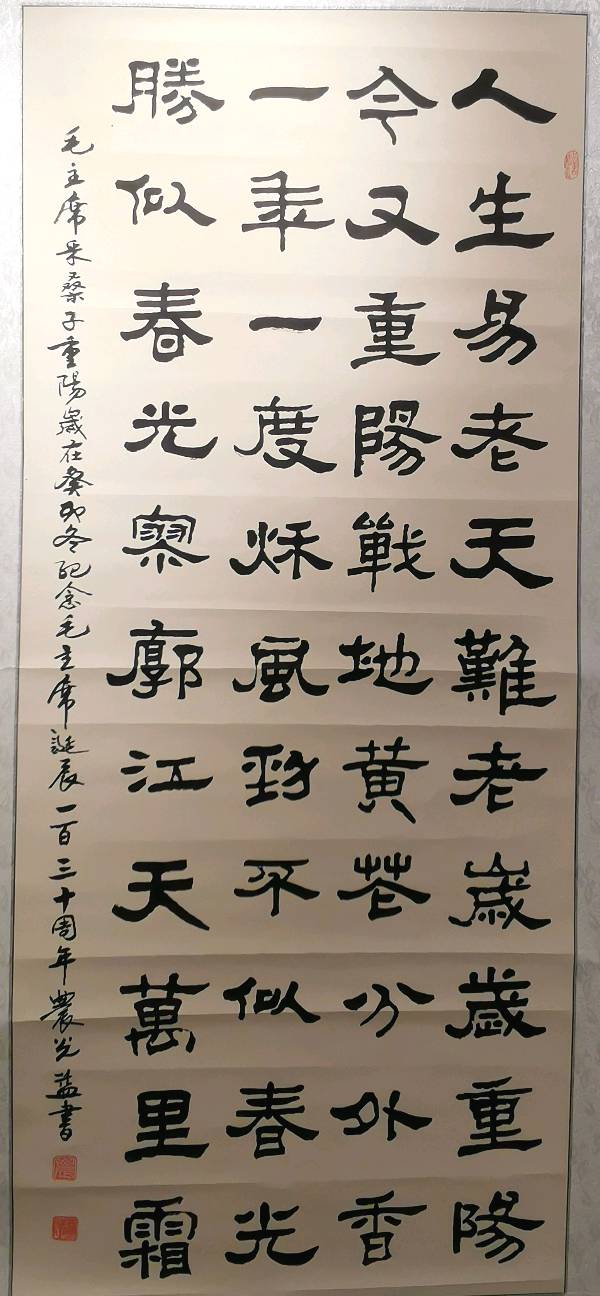 人生易老天難老歲歲重陽
今又重陽戰地黃花分外香
一年一度秌風勁不似春光
勝似春光寥廓江天萬里霜
毛主席采桑子重陽歲在癸卯冬紀念毛主席誕辰一百三十周年農光益書